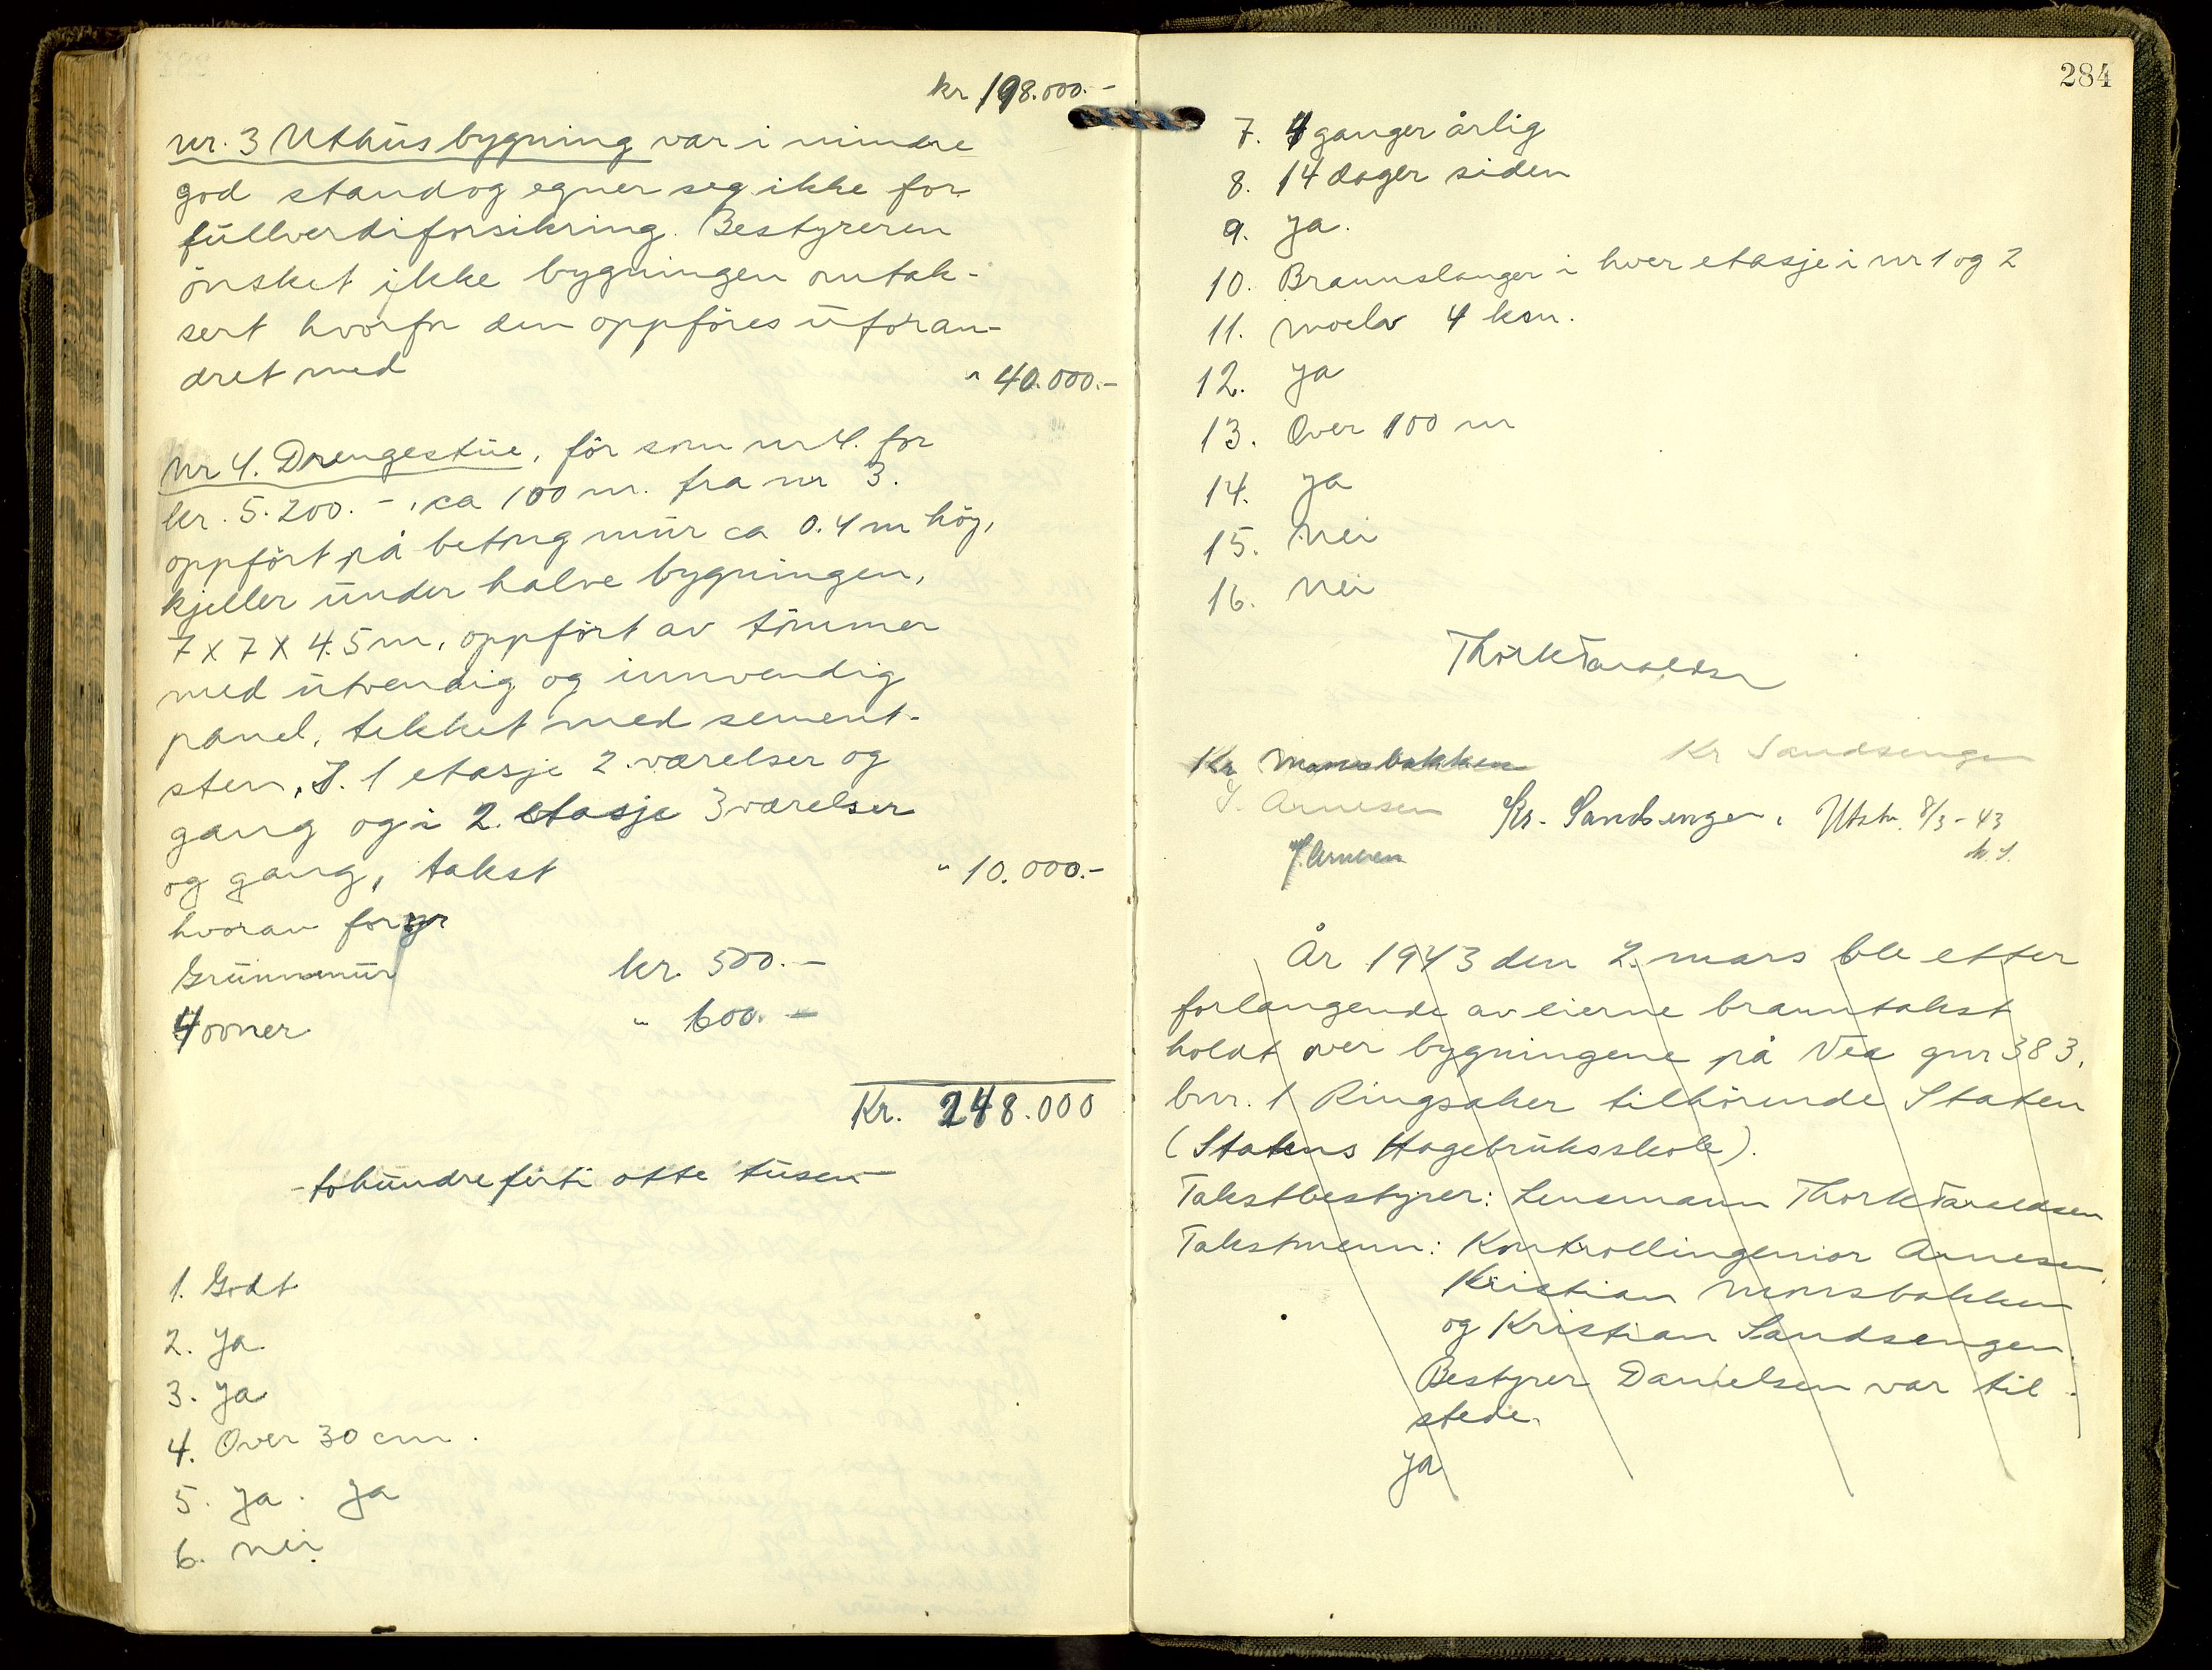 kr 198.000.-
nr. 3 Uthusbygning var i mindre
god stand og egner seg ikke for
fullverdiforsikring. Bestyreren
önsket ikke bygningen omtak-
sert hvorfor den oppföres uforan-
dret med " 40.000.-
Nr 4. Drengestue, för som nr 4. for
kr. 5.200.-, ca 100 m. fra nr 3.
oppfört på betong mur ca 0.4 m höy,
kjeller under halve bygningen,
7 x 7 x 4.5 m, oppfört av tömmer
med utvendig og innvendig
panel, tekket med sement-
sten. I. 1 etasje 2 værelser og
gang og i 2. etasje 3 værelser
og gang, takst " 10.000.-
hvorav for
Grunnmur kr. 500.-
4 ovner " 600.-
Kr. 248.000
- tohundreförti otte tusen -
1. Godt
2. Ja
3. Ja
4. Over 30 cm.
5. Ja. Ja
6. Nei
284
7. 4 ganger årlig
8. 14 dager siden
9. Ja.
10. Brannslanger i hver etasje i nr 1 og 2
11. Moelv 4 km.
12. Ja
13. Over 100 m
14. Ja
15. Nei
16. Nei
Thork Taraldsen
Kr Monsbakken Kr Sandsengen
J. Arnesen Kr. Sandsengen. Utstr. 8/3-43
J. Arnesen
År 1943 den 2. mars ble etter
forlangende av eierne branntakst
holdt over bygningene på Vea gnr 383,
bnr. 1 Ringsaker tilhörende Staten
(Statens Hagebruksskole).
Takstbestyrer: Lensmann Thork Taraldsen
Takstmenn: Kontrollingeniör Arnesen,
Kristian Monsbakken
og Kristian Sandsengen.
Bestyrer Danielsen var til
stede.
Ja